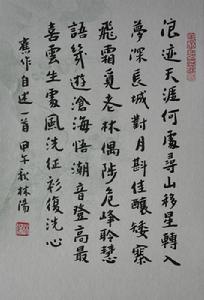 浪迹天涯何處尋山移星轉入
夢深長城對月斟佳釀矮寨
飛霜覓老林偶陟危峰聆慧
語幾遊滄海悟潮音登高最
喜雲生處風洗征衫復洗心
作自述一首甲午秋林陽